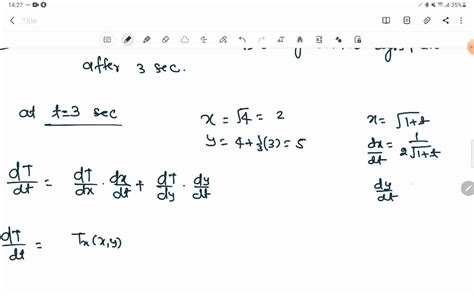 14:27
35%
Title
after 3 sec.
at t=3 sec
x = √4 = 2
y = 4 + 1/3(3) = 5
x = √1+t
dx/dt = 1/2√1+t
dy/dt
dT/dt = dT/dx · dx/dt + dT/dy · dy/dt
dT/dt = Tx(x,y)